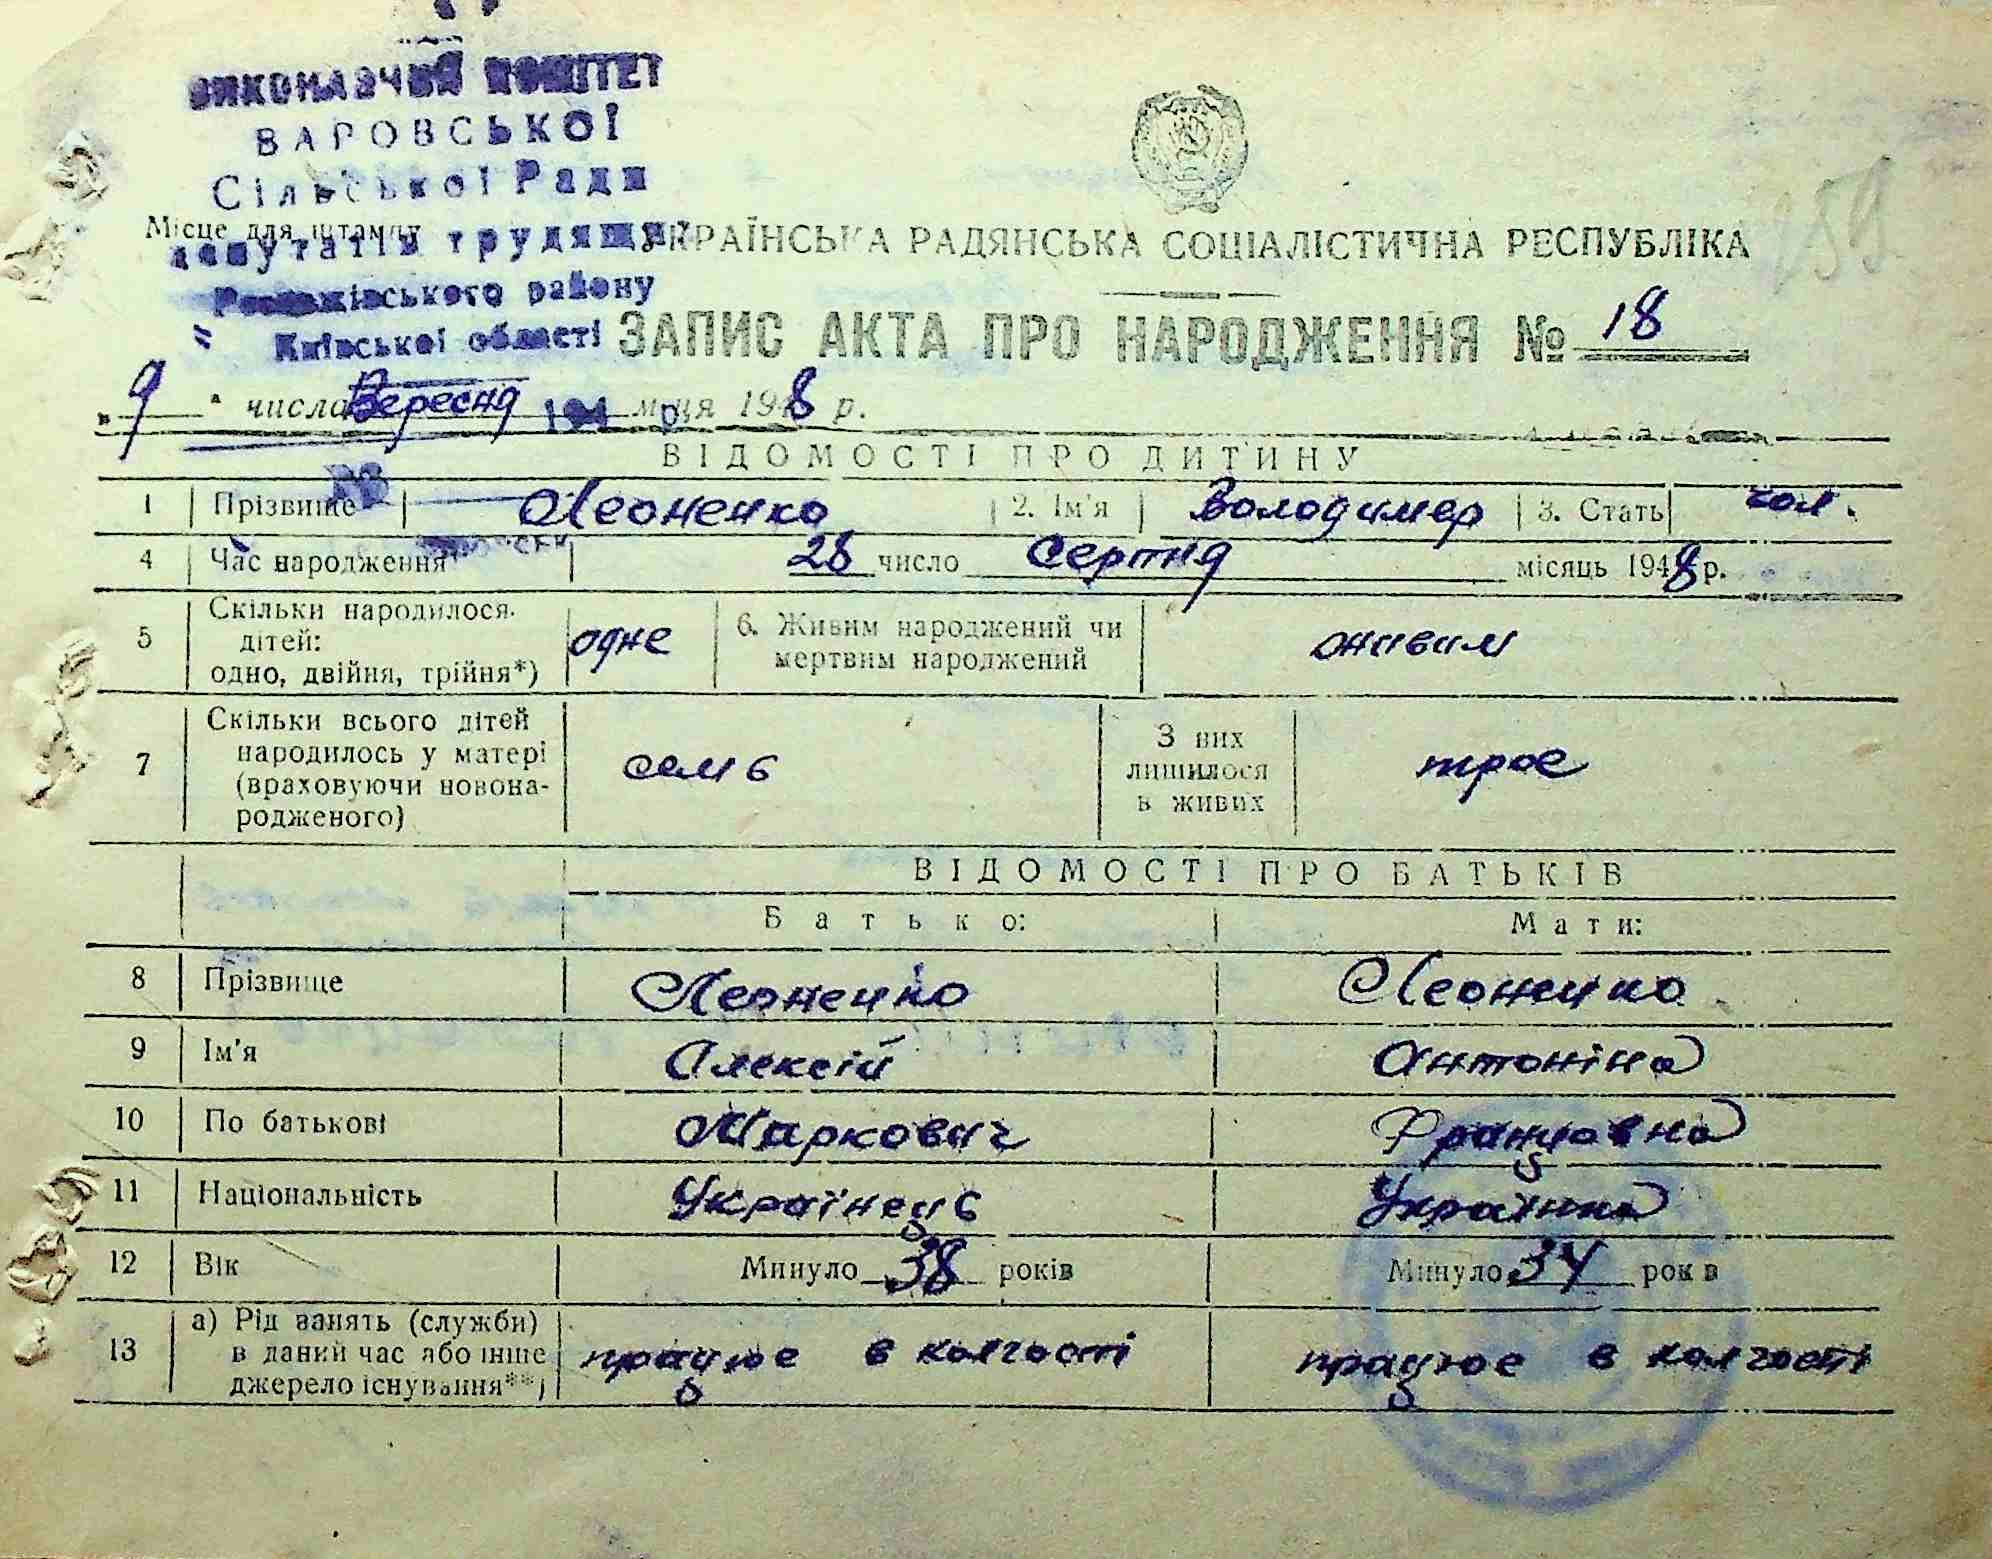 ВИКОНАВЧИЙ КОМІТЕТ
ВАРОВСЬКОЇ
Сільської Ради
Місце для штампу
депутатів трудящих
УКРАЇНСЬКА РАДЯНСЬКА СОЦІАЛІСТИЧНА РЕСПУБЛІКА
259
району
Київської області
ЗАПИС АКТА ПРО НАРОДЖЕННЯ № 18
„ 9 " числа Вересня 194 р. м-ця 1948 р.
ВІДОМОСТІ ПРО ДИТИНУ
1 Прізвище Леоненко 2. Ім'я Володимер 3. Стать чол.
4 Час народження 28 число Серпня місяць 1948 р.
5 Скільки народилося дітей: одно, двійня, трійня*) одне 6. Живим народжений чи мертвим народжений живим
7 Скільки всього дітей народилось у матері (враховуючи новонародженого) семь З них лишилося в живих трое
ВІДОМОСТІ ПРО БАТЬКІВ
Батько: Мати:
8 Прізвище Леоненко Леоненко
9 Ім'я Алексій Антоніна
10 По батькові Маркович Францовна
11 Національність Українець Українка
12 Вік Минуло 38 років Минуло 34 років
13 а) Рід занять (служби) в даний час або інше джерело існування**) працює в колгості працює в колгості